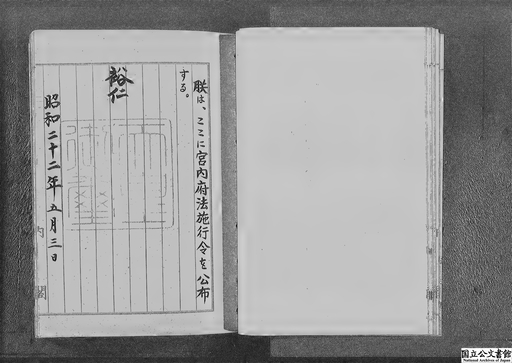 朕は、ここに宮内府法施行令を公布
する。
裕仁
昭和二十二年五月三日
内閣
国立公文書館
National Archives of Japan